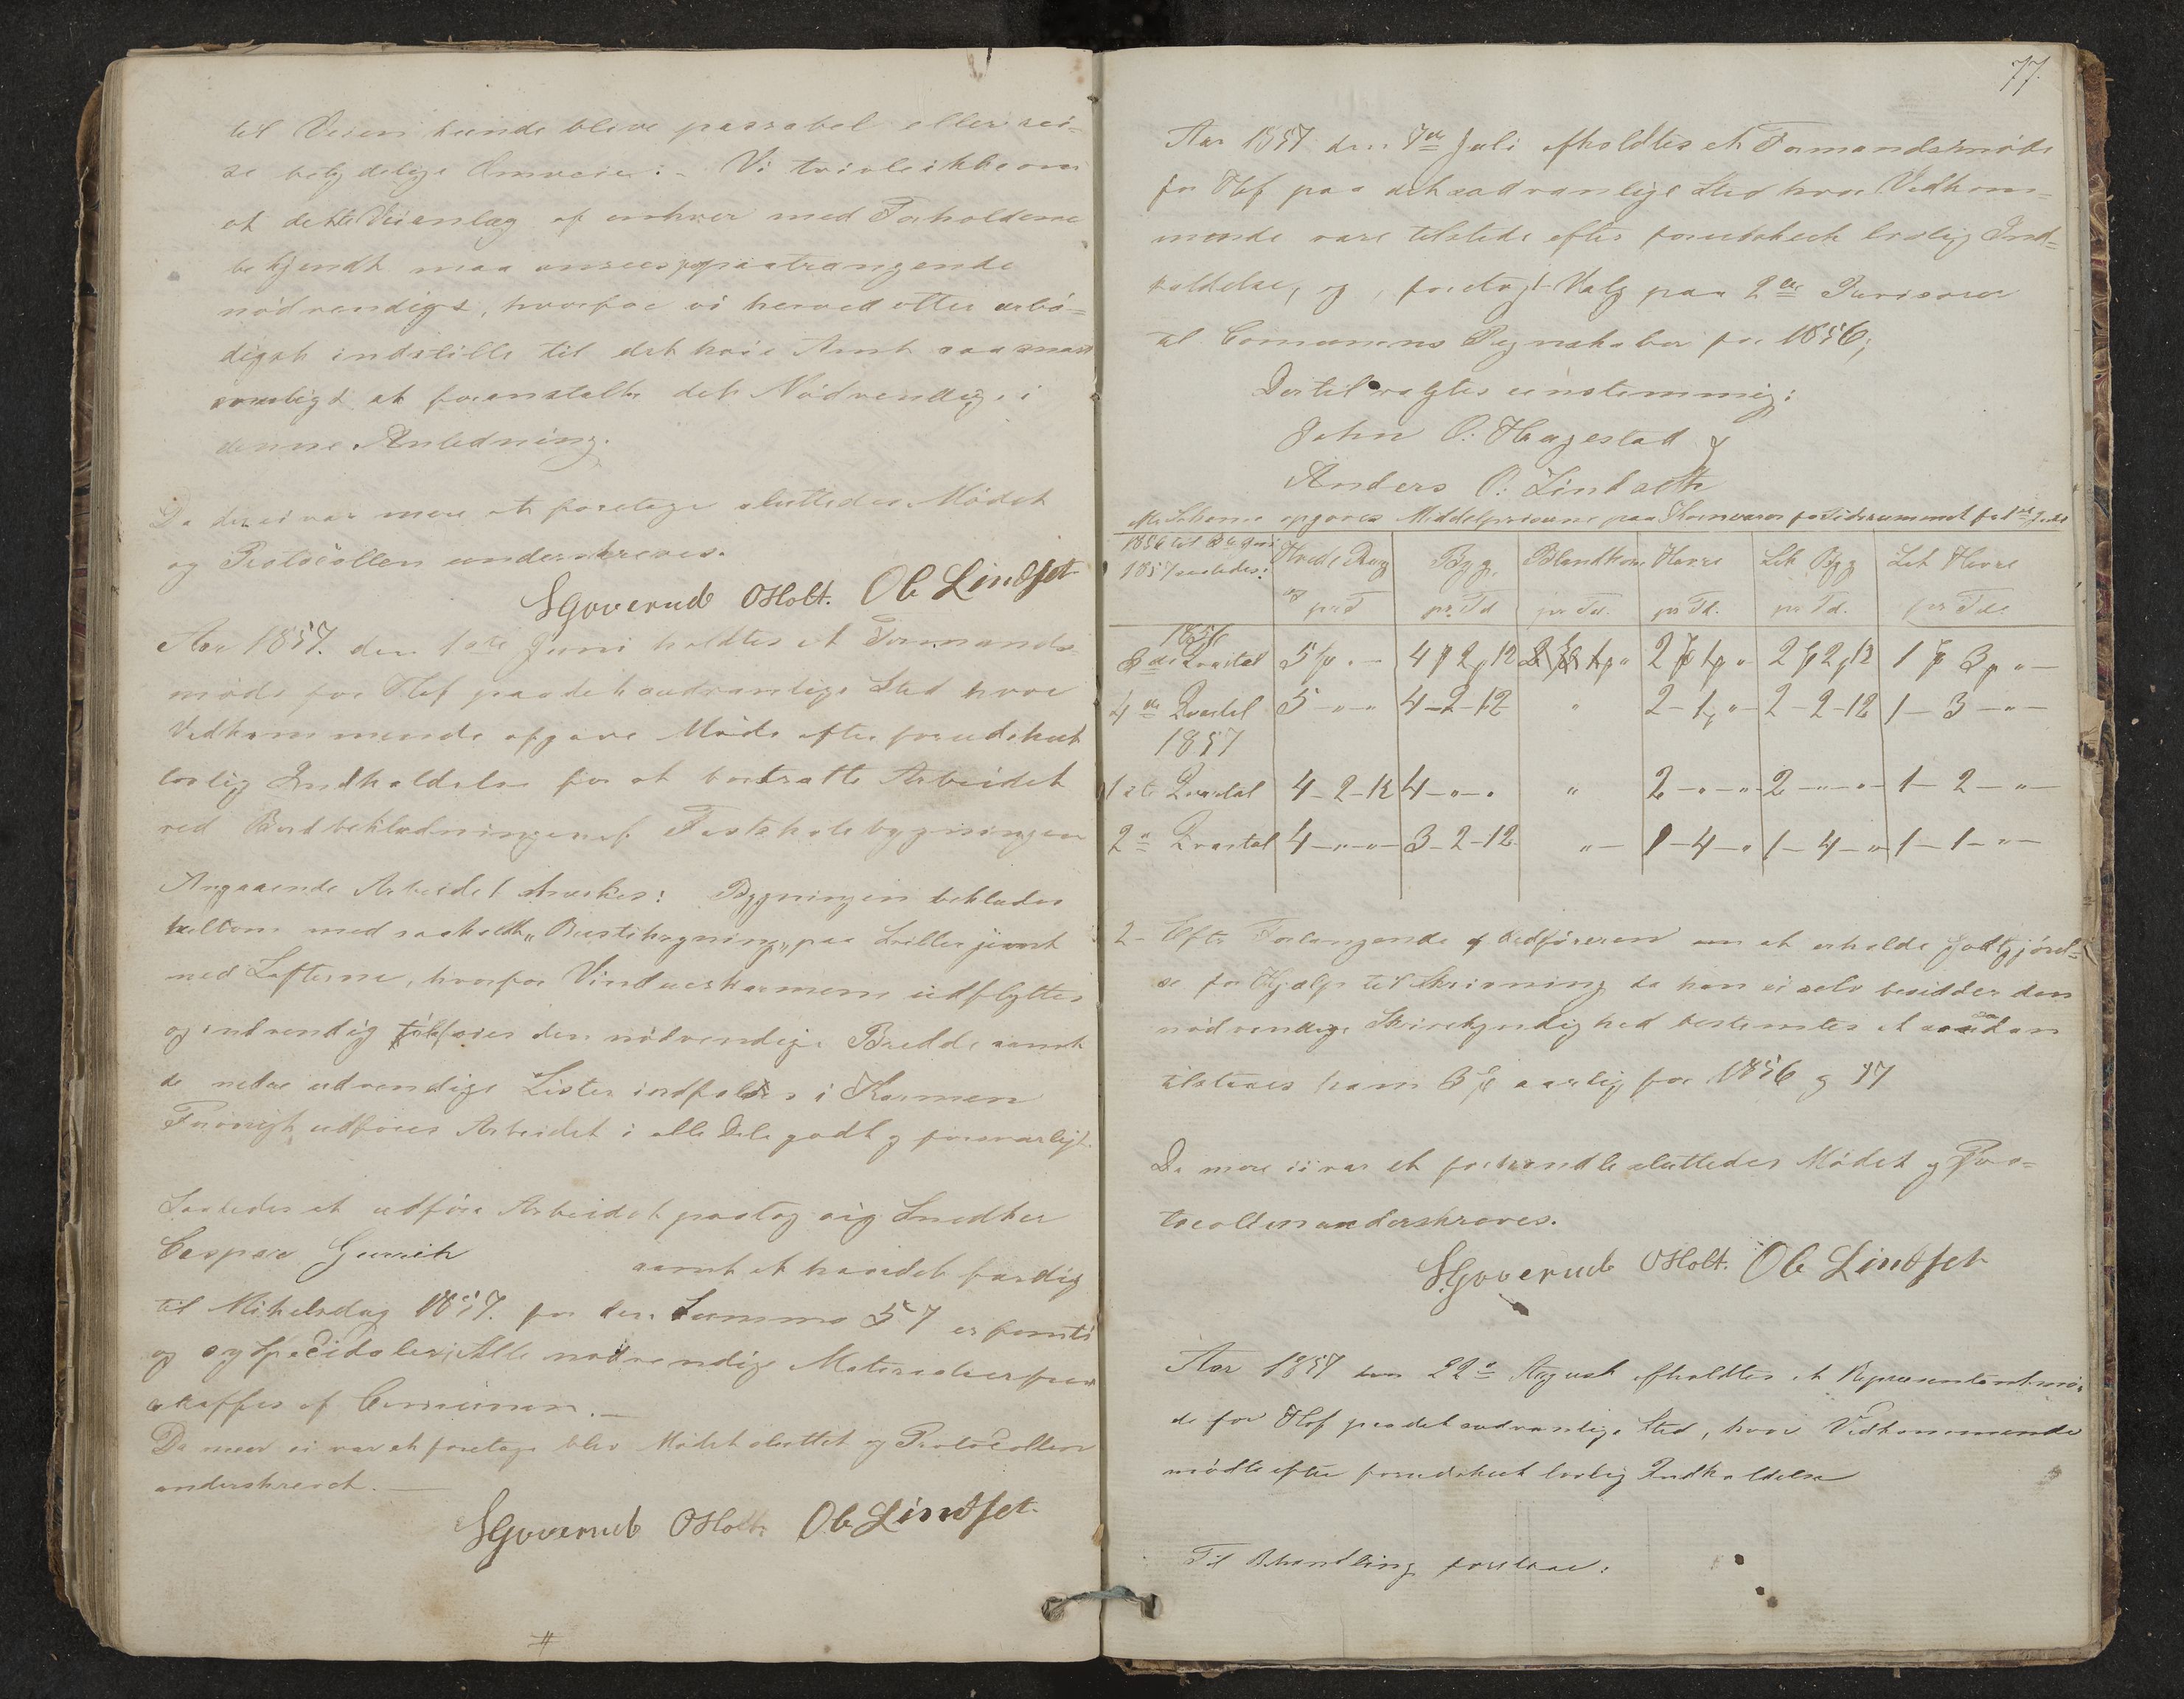 til Veien kunde blive passabel eller rei-
se betydelige Omveie: - Vi tvivle ikke om
at dette Veianlæg af enhver med Forholdene
bekjendt maa ansees paatrængende
nødvendigt, hvorfor vi herved etter ærbø-
digst indstille til det høie Amt saa snart
muligt at foranstalte det Nødvendige i
denne Anledning.
Da der ei var mere at foretage sluttedes Mødet
og Protocollen underskreves.
Goverud OHolt. Ole Lindset
Aar 1857. den 1ste Juni holdtes et Formands-
møde for Hof paa det sædvanlige Sted hvor
Vedkommende afgave Møde efter forudskeet
lovlig Indkaldelse for at bortsætte Arbeidet
ved Bordbeklædningen af Fastskolebygningen
Angaaende Arbeidet : Bygningen beklædes
heltom med saakaldt paa jævnt
med Lofterne, hvorfor Vindueskarmene udflyttes
og indvendig tilføies den nødvendige Bredde samt
de nedre udvendige Lister indfældes i Karmen
Forøvrigt udføres Arbeidet i alle Dele godt og forsvarligt.
Saaledes at udføre Arbeidet paatog sig Snedker
Casper samt at have det færdig
til Mikelsdag 1857. for den Summa 57 er femti
og syv Specidaler; Alle nødvendige Materialier
skaffes af Communen. —
Da mere ei var at foretage blev Mødet sluttet og Protocollen
underskrevet. —
Goverud OHolt Ole Lindset
#
77.
Aar 1857 den 7de Juli afholdtes et Formandsmøde
for Hof paa det sædvanlige Sted hvor Vedkom-
mende vare tilstede efter forudskeet lovlig Ind-
kaldelse, og foretoges Valg paa 2de Revisorer
til Comunens Regnskaber for 1856;
Dertil valgtes eenstemmig:
John O: Hagestad &
Anders O: Lindseth
Schema opgaves Middelpriserne paa Kornvarer for Tidsrummet fra 1ste Juli
1856 til Juni 1857 saaledes: Hvede Rug pr T Byg pr Td Blandkorn pr Td. Havre pr Td. Let Byg pr Td. Let Havre pr Tde
1856
3die Qvartal 5 " - 4 2 12 2 1 " 2 1 " 2 2 12 1 3 " -
4de Qvartal 5 - " - " 4-2-12 " 2-1-" 2-2-12 1-3-"-
1857
1ste Qvartal 4-2-12 4-"-" " 2-"-" 2-"-" 1-2-"-
2n Qvartal 4-"-"- 3-2-12 "- 1-4-" 1-4-" 1-1-"-
2- Efter Forlangende af Ordføreren om at erholde Godtgjørel-
se for Hjælp til Skrivning da han ei selv besidder den
nødvendige Skrivekyndighed bestemtes at saadan
tilstaaes ham 3 aarlig for 1856 og 57
Da mere ei var at forhandle sluttedes Mødet og Pro-
tocollen underskreves.
Goverud OHolt. Ole Lindset
Aar 1857 den 22n August afholdtes et Repræsentantmø-
de for Hof paa det sædvanlige Sted, hvor Vedkommende
mødte efter forudskeet lovlig Indkaldelse
Til Behandling forelaae: